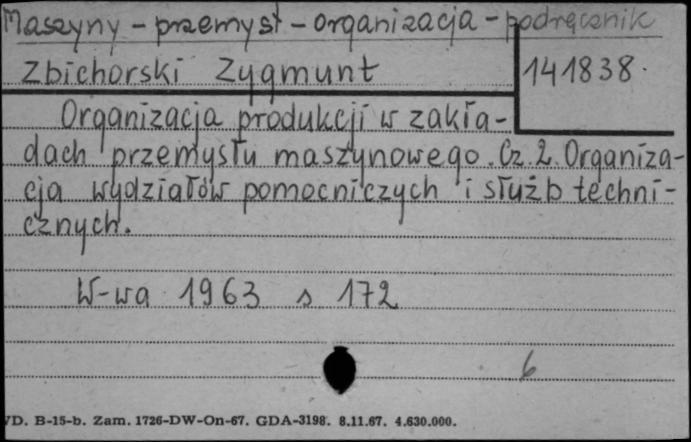 Maszyny - przemysł - organizacja - podręcznik
Zbichorski Zygmunt
141838.
Organizacja produkcji w zakła-
dach przemysłu maszynowego. Cz. 2. Organiza-
cja wydziałów pomocniczych i służb techni-
cznych.
W-wa 1963 s 172
6
VD. B-15-b. Zam. 1726-DW-On-67. GDA-3198. 8.11.67. 4.630.000.